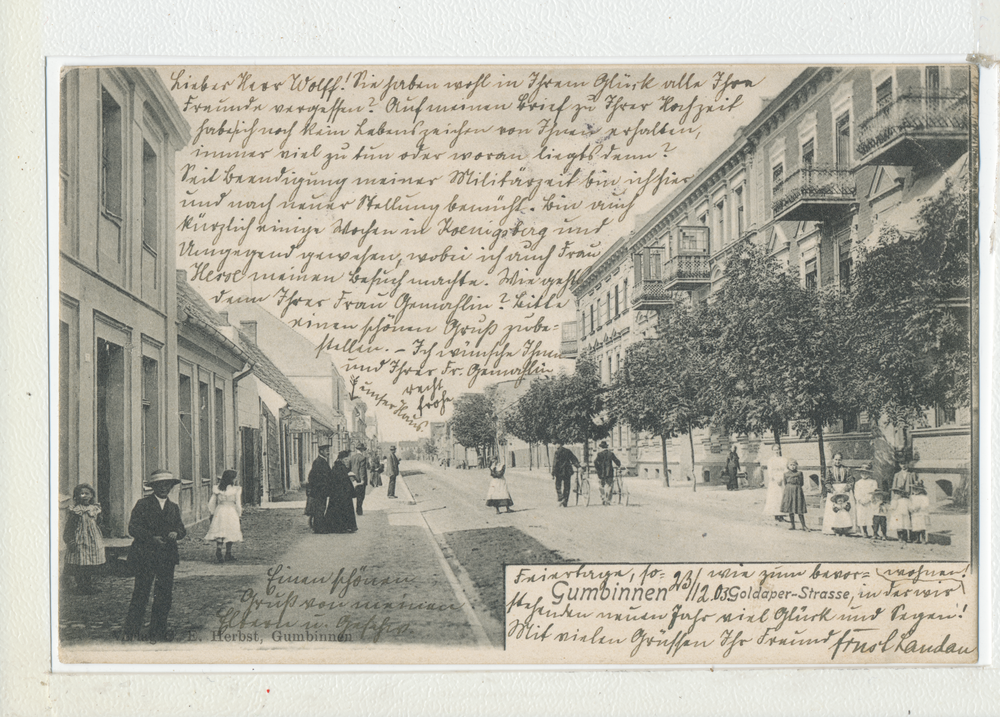 Lieber Herr Wolff! Sie haben wohl in Ihrem Glück alle Ihre
Freunde vergessen? Auf meinen Brief zu Ihrer Hochzeit
habe ich noch kein Lebenszeichen von Ihnen erhalten,
immer viel zu tun oder woran liegts denn?
Seit Beendigung meiner Militärzeit bin ich hier
und nach neuer Stellung bemüht. Bin auch
kürzlich einige Wochen in Koenigsberg und
Umgegend gewesen, wobei ich auch Frau
meinen Besuch machte. Wie geht
denn Ihrer Frau Gemahlin? Bitte
einen schönen Gruß zube-
stellen. – Ich wünsche Ihnen
und Ihrer Fr. Gemahlin
recht
frohe
Feiertage, so- wie zum bevor-
stehenden neuen Jahr viel Glück und Segen!
Mit vielen Grüssen Ihr Freund Ernst Landau
23/12.03
Gumbinnen Goldaper-Strasse,
in der wir
wohnen!
unser Haus
Einen schönen
Gruß von meinen
Eltern u. Geschw.
E. Herbst, Gumbinnen